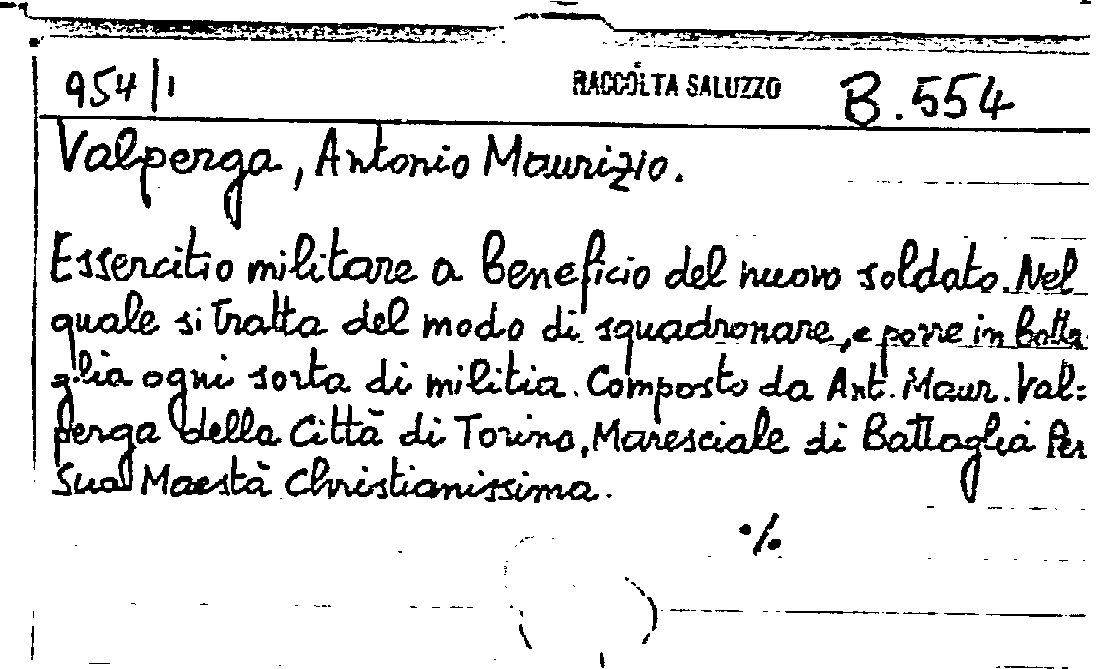 954/1 RACCOLTA SALUZZO B.554
Valperga, Antonio Maurizio.
Essercitio militare a beneficio del nuovo soldato. Nel
quale si tratta del modo di squadronare, e porre in batta
glia ogni sorta di militia. Composto da Ant. Maur. Val=
perga della Città di Torino, Maresciale di Battaglia per
Sua Maestà Christianissima.
·/.